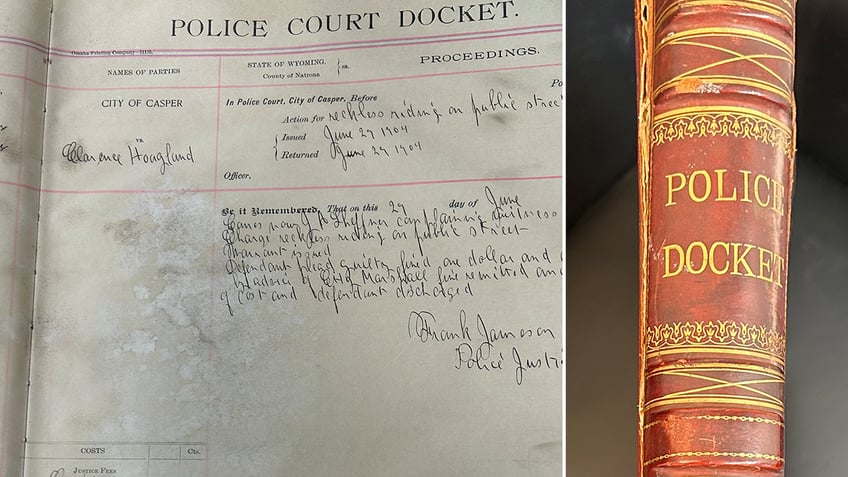 POLICE COURT DOCKET.
Omaha Printing Company
NAMES OF PARTIES
STATE OF WYOMING, } ss.
County of Natrona
PROCEEDINGS.
Po
CITY OF CASPER
vs.
Clarence Hoagland
In Police Court, City of Casper, Before
Action for reckless riding on public stree
Issued June 29 1904
Returned June 29 1904
Officer.
Be it Remembered, That on this 29 day of June
Comes now Sheffner complaining witness
Charge reckless riding on public street
Warrant issued
Defendant pleas guilty fined one dollar and
by advice of City Marshall fine remitted an
of cost and defendant discharged
Frank Jameson
Police Justi
COSTS
Cts.
JUSTICE FEES
POLICE
DOCKET